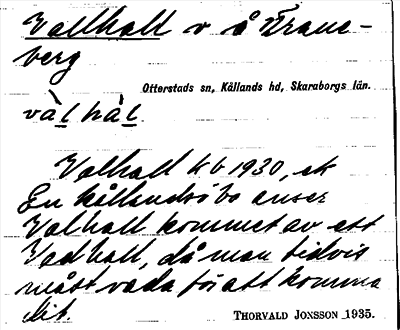 Valhall v å Frans-
berg
Otterstads sn, Kållands hd, Skaraborgs län.
và̲l hàl̲
Valhall kb 1930, ek
En kållandsöbo anser
Valhall kommet av ett
Vadhall, då man tidvis
måst vada för att komma
dit.
THORVALD JONSSON 1935.